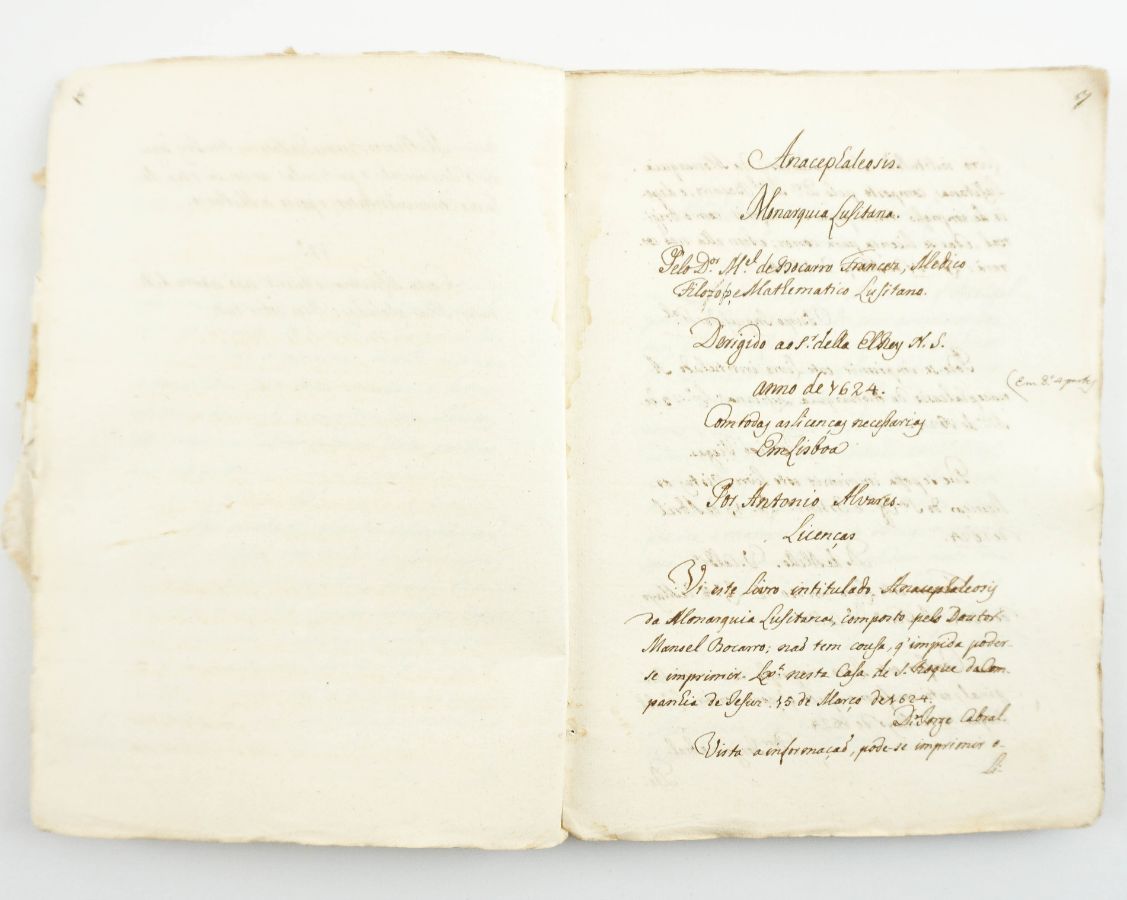 Anacephaleosis.
Monarquia Lusitana.
Pelo D.or M.el de Bocarro Francez, Medico
Filozofo, e Mathematico Lusitano.
Derigido ao S.r della ElRey N. S.
anno de 1624.
(em 8.º 4 partes)
Com todas as licenças necessarias
Em Lisboa
Por Antonio Alvares.
Licenças
Vi este livro intitulado, Anacephaleosis
da Monarquia Lusitana, composto pelo Doutor
Manoel Bocarro; naõ tem cousa, q' impida poder-
se imprimir. Lx.ª nesta Casa de S. Roque da Com-
panhia de Jesus. 15 de Março de 1624.
D.r Jorge Cabral.
Vista a informaçaõ, pode-se imprimir o-
Li-